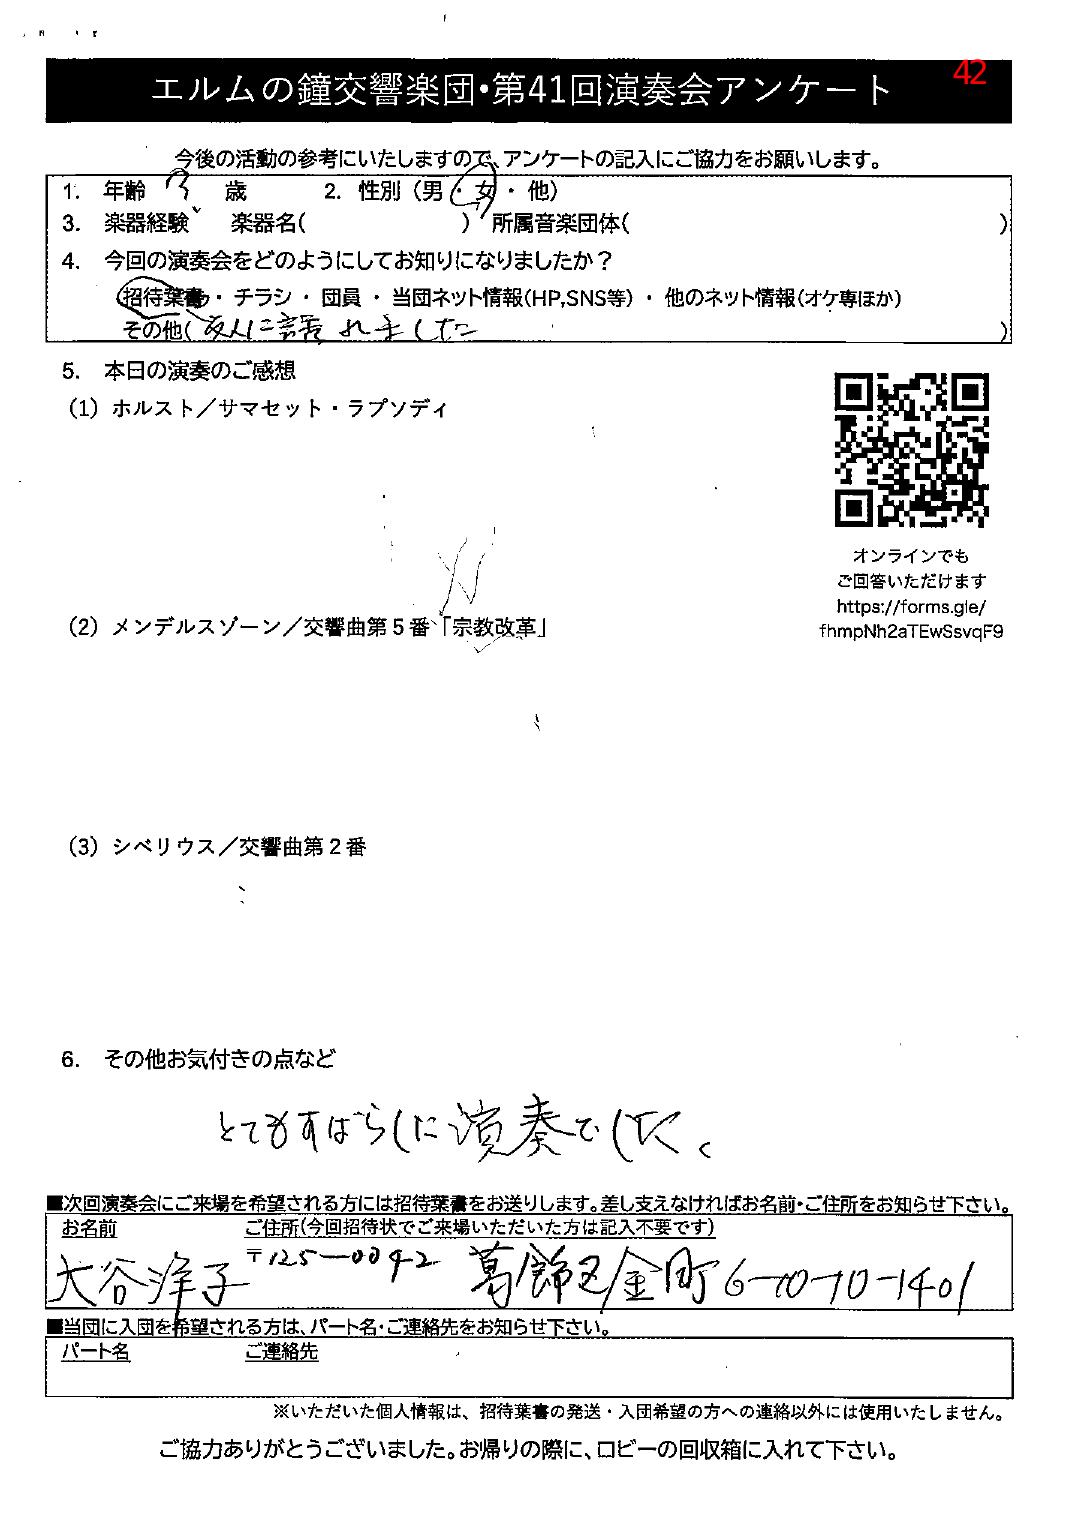 42
エルムの鐘交響楽団・第41回演奏会アンケート
今後の活動の参考にいたしますので、アンケートの記入にご協力をお願いします。
1. 年齢 歳 2. 性別（男・女・他）
3. 楽器経験 楽器名( ) 所属音楽団体( )
4. 今回の演奏会をどのようにしてお知りになりましたか？
招待葉書・チラシ・団員・当団ネット情報(HP,SNS等)・他のネット情報(オケ専ほか)
その他( 友人に誘われました )
5. 本日の演奏のご感想
(1) ホルスト／サマセット・ラプソディ
オンラインでも
ご回答いただけます
https://forms.gle/
fhmpNh2aTEwSsvqF9
(2) メンデルスゾーン／交響曲第５番「宗教改革」
(3) シベリウス／交響曲第２番
6. その他お気付きの点など
とてもすばらしい演奏でした。
■次回演奏会にご来場を希望される方には招待葉書をお送りします。差し支えなければお名前・ご住所をお知らせ下さい。
お名前 ご住所(今回招待状でご来場いただいた方は記入不要です)
大谷洋子 〒125-0042 葛飾区金町6-10-10-1401
■当団に入団を希望される方は、パート名・ご連絡先をお知らせ下さい。
パート名 ご連絡先
※いただいた個人情報は、招待葉書の発送・入団希望の方への連絡以外には使用いたしません。
ご協力ありがとうございました。お帰りの際に、ロビーの回収箱に入れて下さい。